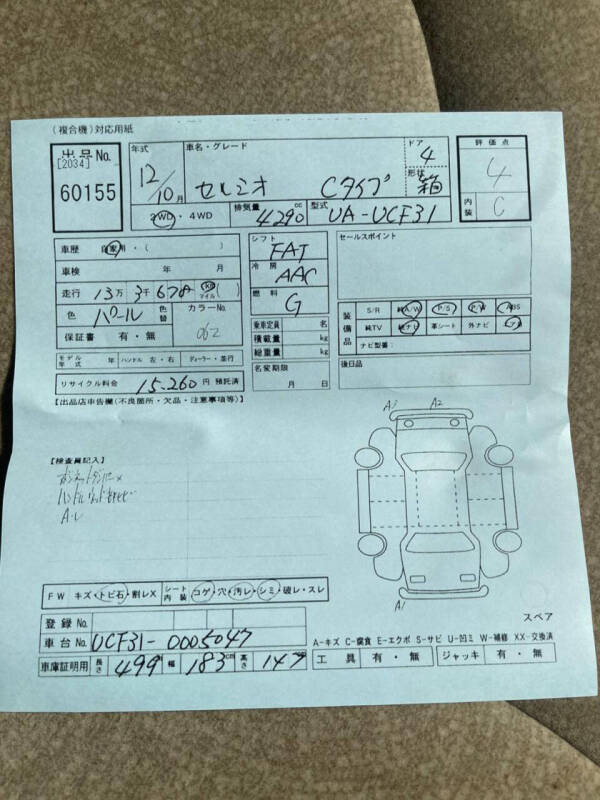 (複合機)対応用紙
出品No.
[2034]
60155
年式
12/10月
車名・グレード
セルシオ Cタイプ
ドア
4
形状
箱
評価点
4
内装
C
2WD・4WD
排気量
4290cc
型式
UA-UCF31
車歴 自家用・( )
車検 年 月
走行 13万3千678 km マイル
色 パール
色替
カラーNo.
062
保証書 有・無
モデル年式 年 ハンドル 左・右 ディーラー・並行
リサイクル料金 15,260円 預託済
シフト
FAT
冷房
AAC
燃料
G
乗車定員 名
積載量 kg
総重量 kg
名変期限
月 日
セールスポイント
装備品
S/R 純A/W P/S P/W ABS
純TV 純ナビ 革シート 外ナビ
ナビ型番:
後日品
【出品店申告欄(不良箇所・欠品・注意事項等)】
【検査員記入】
A1
A2
A1
スペア
FW キズ・トビ石・割レX
シート内装 コゲ・穴・汚レ・シミ・破レ・スレ
登録No.
車台No. UCF31-0005047
車庫証明用 長さ 499 幅 183cm 高さ 147cm
A-キズ C-腐食 E-エクボ S-サビ U-凹ミ W-補修 XX-交換済
工具 有・無 ジャッキ 有・無